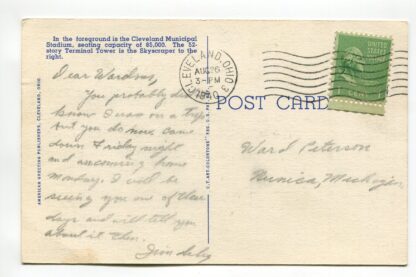 In the foreground is the Cleveland Municipal
Stadium, seating capacity of 85,000. The 52-
story Terminal Tower is the Skyscraper to the
right.
CLEVELAND, OHIO
AUG 26
3-PM
1940
UNITED STATES
POST CARD
Dear
You probably
know I was on a trip
but you do now. Came
down Friday night
and am coming home
Monday. I will be
seeing you one of these
days and will tell you
about it then.
Ward Peterson
Nunica, Michigan
AMERICAN GREETING PUBLISHERS, CLEVELAND, OHIO.
C.T. ART-COLORTONE